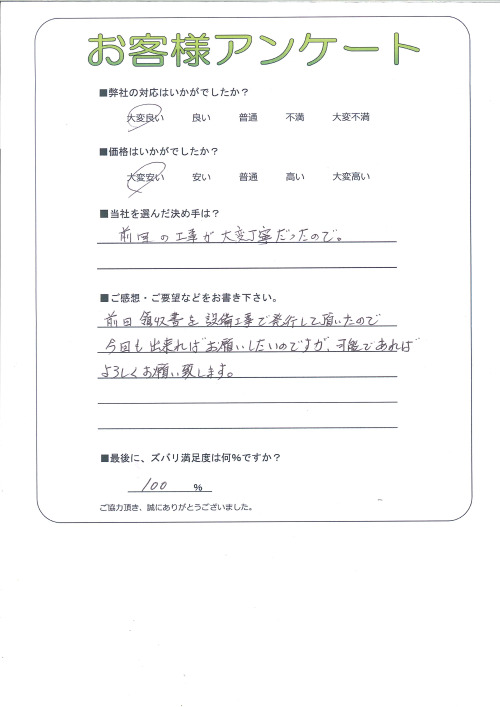 お客様アンケート
■弊社の対応はいかがでしたか？
大変良い 良い 普通 不満 大変不満
■価格はいかがでしたか？
大変安い 安い 普通 高い 大変高い
■当社を選んだ決め手は？
前回の工事が大変丁寧だったので。
■ご感想・ご要望などをお書き下さい。
前回領収書を設備工事で発行して頂いたので
今回も出来ればお願いしたいのですが、可能であれば
よろしくお願い致します。
■最後に、ズバリ満足度は何％ですか？
100 ％
ご協力頂き、誠にありがとうございました。